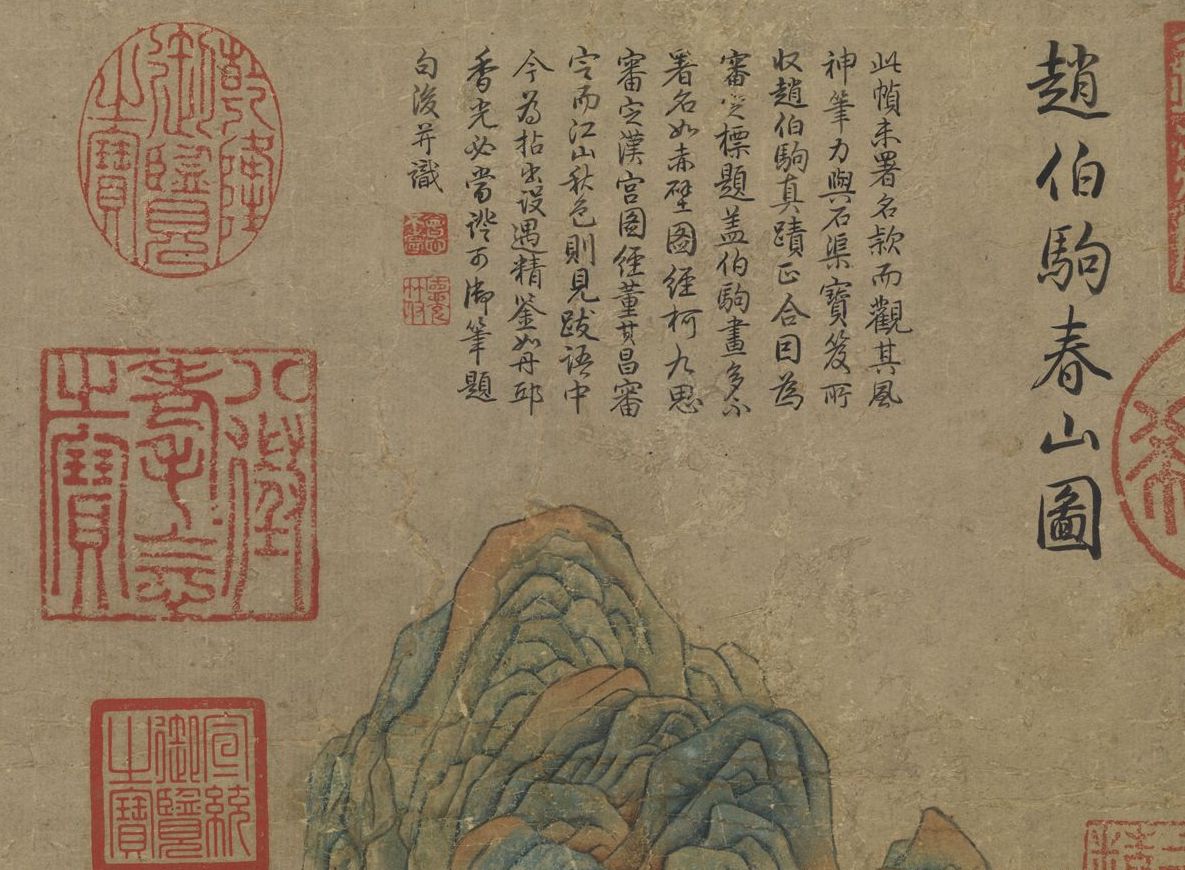 趙伯駒春山圖
此幀未署名款而觀其風
神筆力與石渠寶笈所
收趙伯駒真蹟正合因為
審定標題蓋伯駒畫多不
署名如赤壁圖經柯九思
審定漢宮圖經董其昌審
定而江山秋色則見跋語中
今為拈出設遇精鉴如丹邱
香光必當證可御筆題
句後并識
乾隆御覽之寶
八徵耄念之寶
宣統御覽之寶